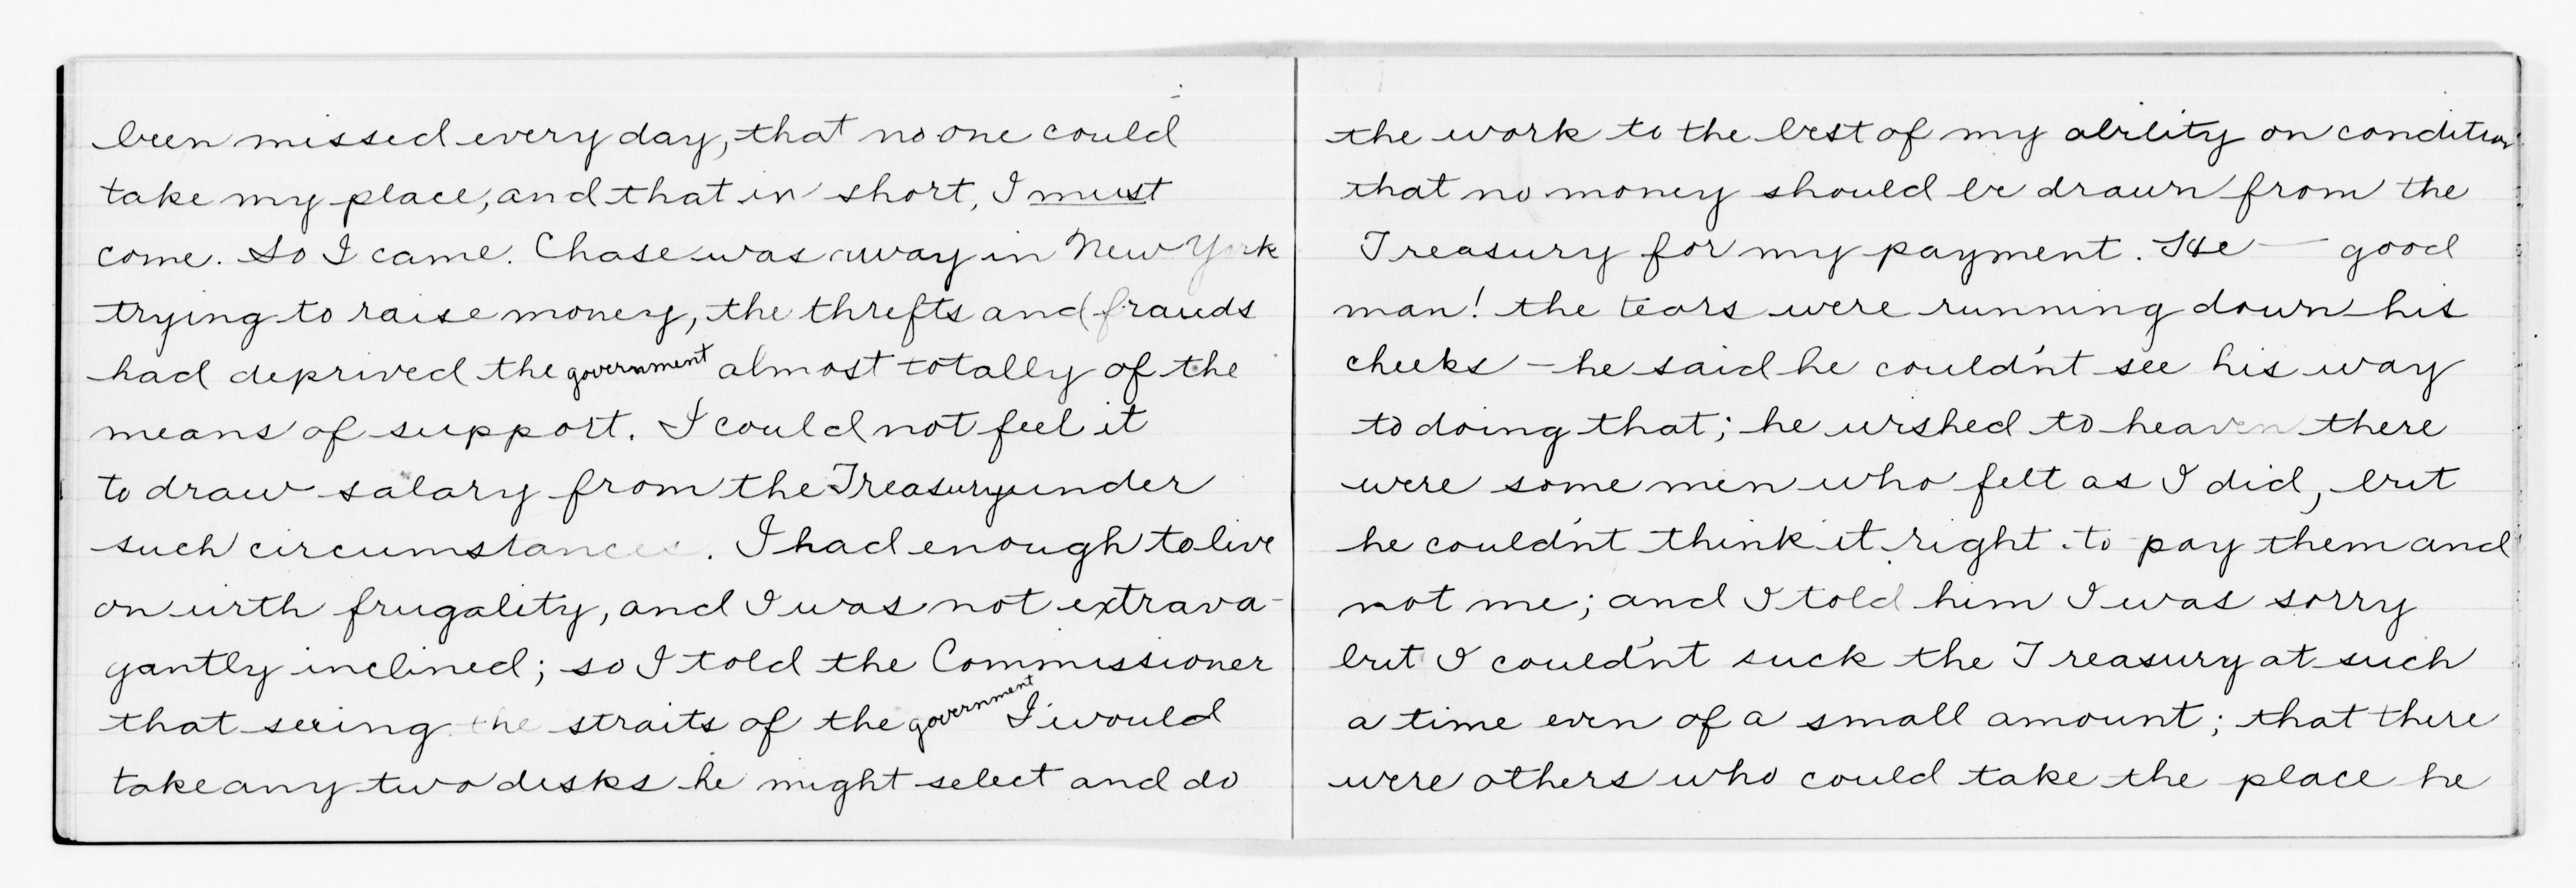 been missed every day, that no one could
take my place, and that in short, I must
come. So I came. Chase was away in New York
trying to raise money, the threfts and frauds
had deprived the government almost totally of the
means of support. I could not feel it
to draw salary from the Treasury under
such circumstances. I had enough to live
on with frugality, and I was not extrava-
gantly inclined; so I told the Commissioner
that seeing the straits of the government I would
take any two desks he might select and do
the work to the best of my ability on condition
that no money should be drawn from the
Treasury for my payment. He — good
man! the tears were running down his
cheeks — he said he could'nt see his way
to doing that; he wished to heaven there
were some men who felt as I did, but
he could'nt think it right to pay them and
not me; and I told him I was sorry
but I could'nt suck the Treasury at such
a time even of a small amount; that there
were others who could take the place he